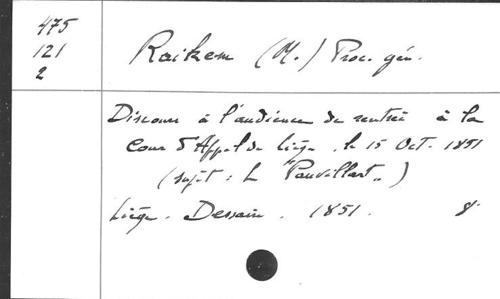 475
121
2
Raikem (M.) Proc. gén.
Discours à l'audience de rentrée à la
Cour d'Appel de Liège, le 15 Oct. 1851
(sujet : L
Liège. Dessain. 1851. 8°